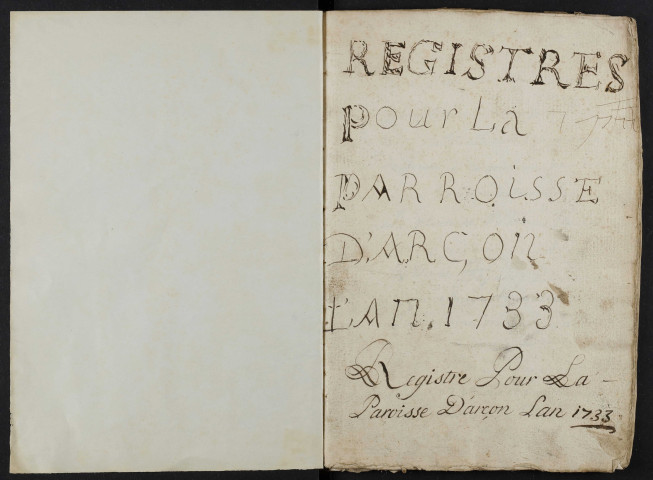 REGISTRES
pour La
PARROISSE
D'ARÇON
L'AN. 1733
Registre Pour La
Paroisse D'arçon Lan 1733